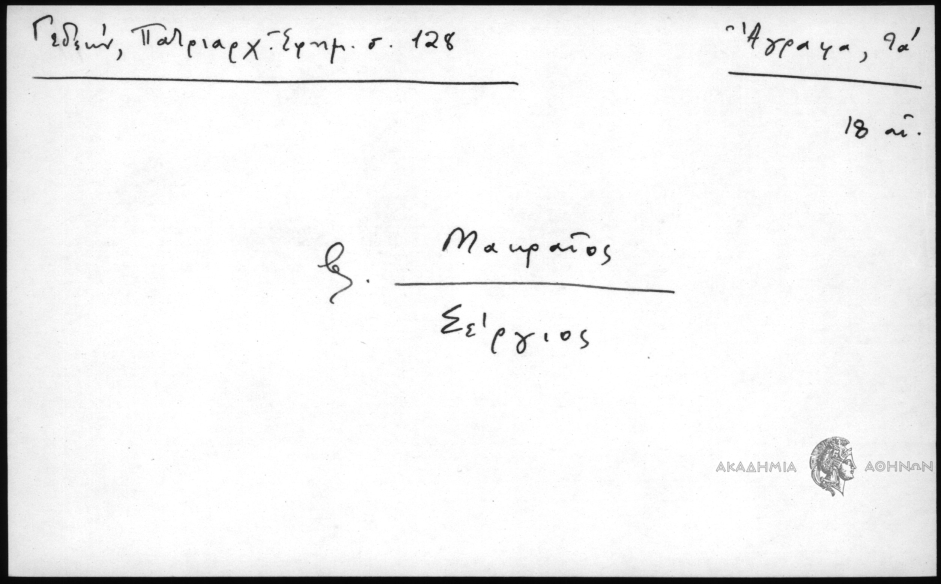 Γεδεών, Πατριαρχ. Εφημ. σ. 128
Ἄγραφα,
18 αἰ.
Μακραῖος
Σέργιος
ΑΚΑΔΗΜΙΑ ΑΘΗΝΩΝ